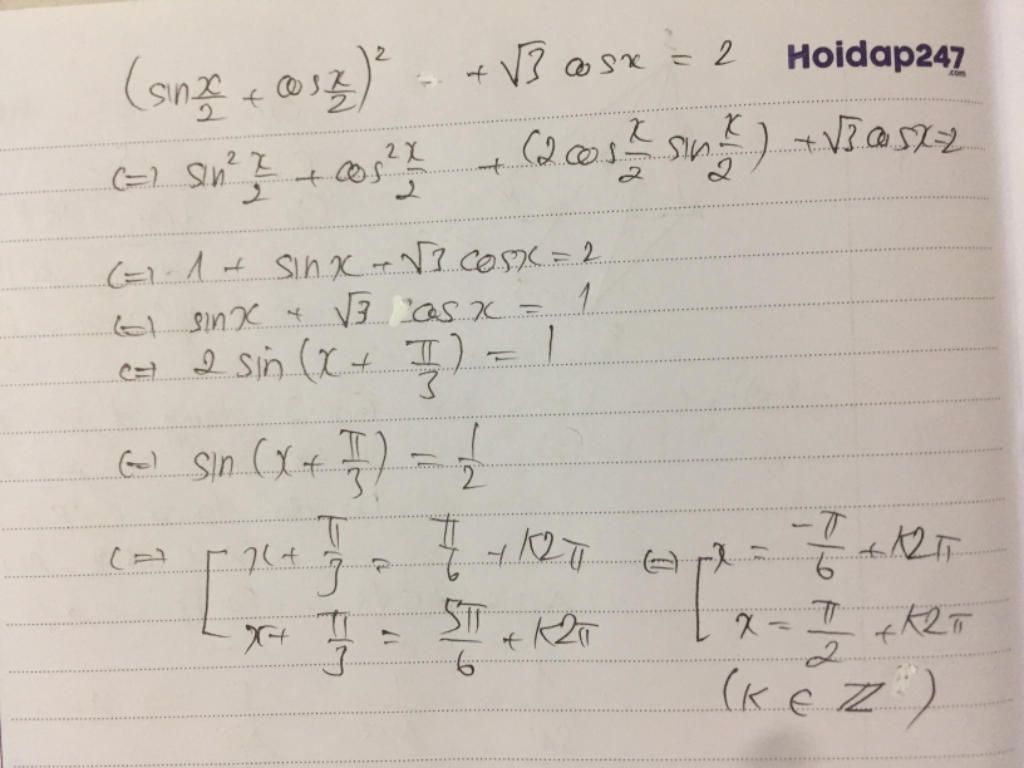 (sin x/2 + cos x/2)² + √3 cosx = 2
Hoidap247
.com
(=) sin² x/2 + cos² x/2 + (2 cos x/2 sin x/2) + √3 cosx=2
(=) 1 + sinx + √3 cosx = 2
(=) sinx + √3 cosx = 1
(=) 2 sin (x + π/3) = 1
(=) sin (x + π/3) = 1/2
(=) [ x + π/3 = π/6 + k2π (=) [ x = -π/6 + k2π
x + π/3 = 5π/6 + k2π x = π/2 + k2π
(k ∈ Z)